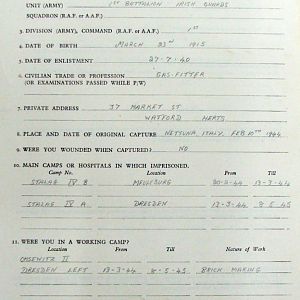 UNIT (ARMY) 1ST BATTALION IRISH GUARDS
SQUADRON (R.A.F. or A.A.F.)
3. DIVISION (ARMY), COMMAND (R.A.F. or A.A.F.) 1ST
4. DATE OF BIRTH MARCH 23RD 1915
5. DATE OF ENLISTMENT 27-7-40
6. CIVILIAN TRADE OR PROFESSION GAS-FITTER
(OR EXAMINATIONS PASSED WHILE P/W)
7. PRIVATE ADDRESS 37 MARKET ST
WATFORD HERTS
8. PLACE AND DATE OF ORIGINAL CAPTURE ITALY, FEB 10TH 1944
9. WERE YOU WOUNDED WHEN CAPTURED? NO
10. MAIN CAMPS OR HOSPITALS IN WHICH IMPRISONED.
Camp No. Location From Till
STALAG IV B -44
STALAG IV A DRESDEN 13-3-44 8-5-45
11. WERE YOU IN A WORKING CAMP?
Location From Till Nature of Work
II
DRESDEN 13-3-44 8-5-45 BRICK MAKING